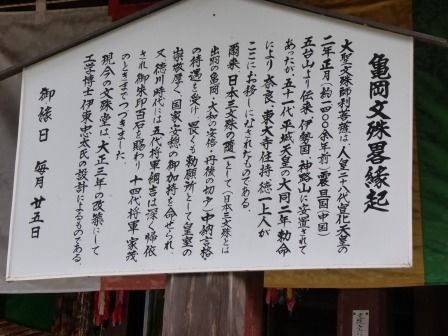 亀岡文殊畧縁起
大聖文殊師利菩薩は、人皇二十八代宣化天皇の
二年正月(約一四〇〇年前)震旦国(中国)
五台山より伝来伊勢国神路山に安置されて
あったが、五十一代平城天皇の大同二年勅命
により奈良東大寺住持徳一上人が
ここにお移しになされたものである。
爾来日本三文殊の随一として(日本三文殊とは
出羽の亀岡、大和の安倍、丹後の切戸)中納言格
の待遇を受け畏くも勅願所として皇室の
崇敬厚く、国家安穏の御加持を命ぜられ、
又徳川時代には五代将軍綱吉は深く帰依
され御朱印百石を賜わり、十四代将軍家茂
のときまでつづきました。
現今の文殊堂は大正三年の改築にして
工学博士伊東忠太氏の設計によるものである。
御縁日 毎月廿五日